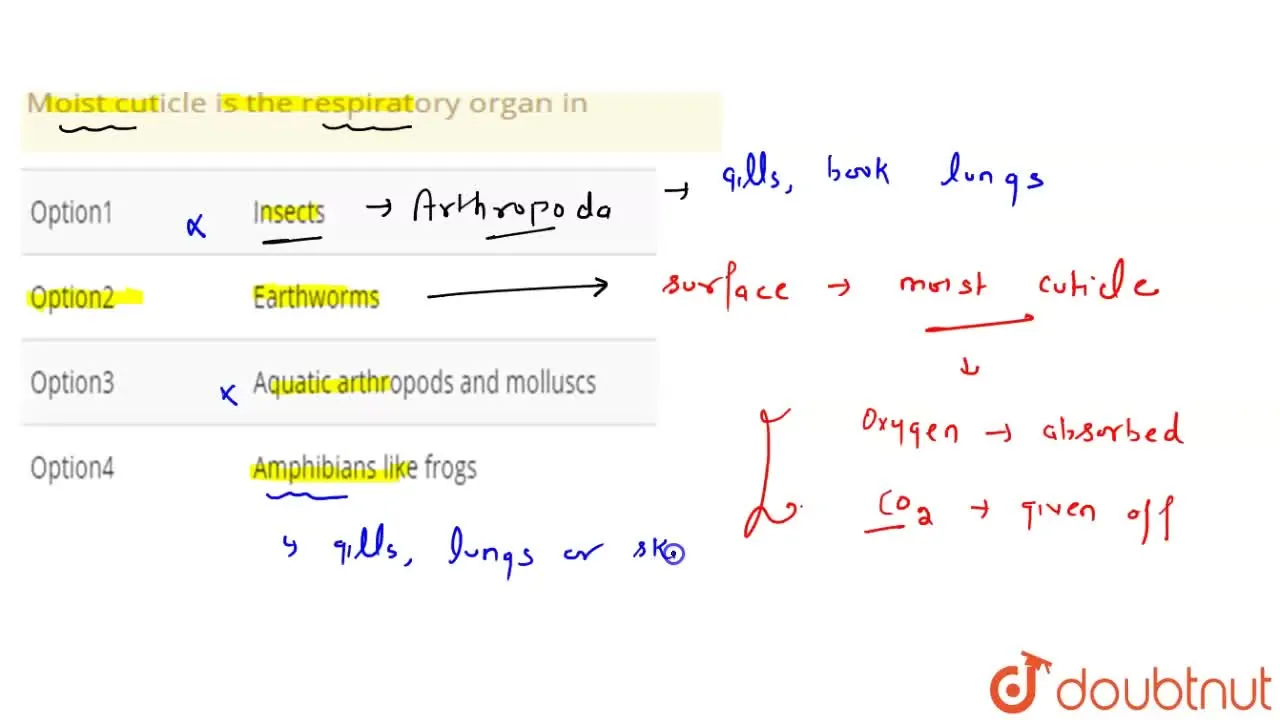 Moist cuticle is the respiratory organ in
Option1 Insects → Arthropoda → gills, book lungs
Option2 Earthworms → surface → moist cuticle
Option3 Aquatic arthropods and molluscs
Oxygen → absorbed
Option4 Amphibians like frogs
CO2 → given off
gills, lungs or
doubtnut